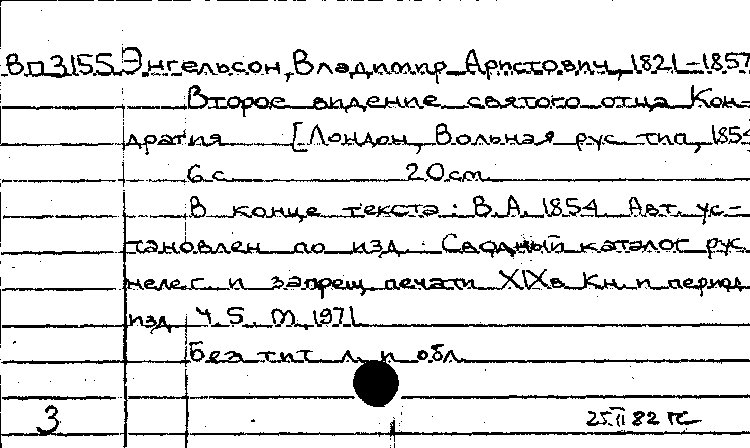 Вп3155 Энгельсон, Владимир Аристович, 1821-1857
Второе видение святого отца Кон-
дратия [Лондон, Вольная рус. тип., 1854
6 с. 20 см.
В конце текста: В.А. 1854. Авт. ус-
тановлен по изд.: Сводный каталог рус.
нелег. и запрещ. печати XIX в. Кн. и период.
изд. Ч. 5. М., 1971.
Без тит. л. и обл.
3 25.II 82